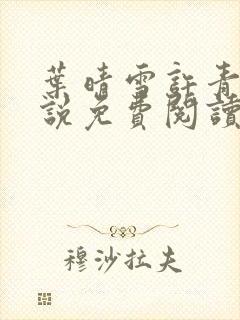 葉晴雪許青
說免費閱讀
穆沙拉夫